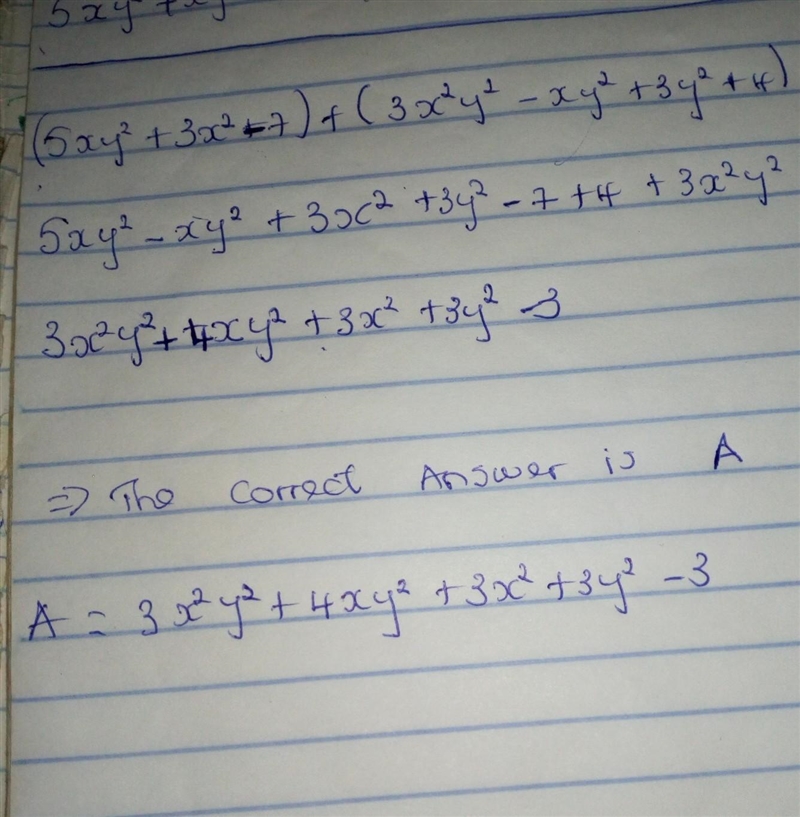 5xy²
(5xy² + 3x² - 7) + (3x²y² - xy² + 3y² + 4)
5xy² - xy² + 3x² + 3y² - 7 + 4 + 3x²y²
3x²y² + 4xy² + 3x² + 3y² - 3
⇒ The correct Answer is A
A = 3x²y² + 4xy² + 3x² + 3y² - 3